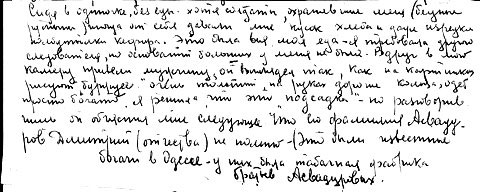 Сидя в одиночке, без еды - хотя солдаты, охранявшие меня (бедные
рутины, иногда от себя давали мне кусок хлеба и даже изредка
полбутылки кефира. Это была вся моя еда - я требовала другого
следователя, но оснований больших у меня не было. Вдруг в мою
камеру привели мужчину, он выглядел так, как на картинках
рисуют буржуев: очень толстый, на руках дорогие кольца, одет
просто богато. я решила, что это "подсадка" - но разговорив-
шись он объяснил мне следующее что его фамилия Асваду-
ров Дмитрий (отчества) не помню - (Это были известные
богачи в Одессе - у них была табачная фабрика
братьев Асвадуровых.